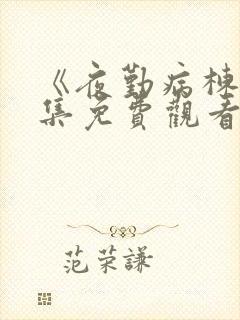 《夜勤病棟
集免費觀看
范荣謙